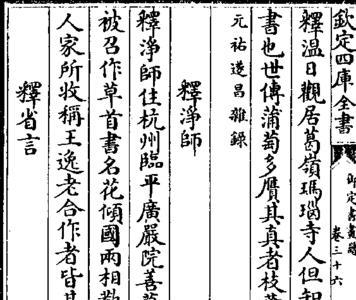 欽定四庫全書
御定書畫譜
卷三十六
釋温日觀居葛嶺瑪瑙寺人但知
書也世傳蒲萄多贋其真者枝
元祐遂昌雜錄
釋淨師
釋淨師住杭州臨平廣嚴院善
被召作草首書名花傾國兩相歡
人家所收稱王逸老合作者皆其
釋省言